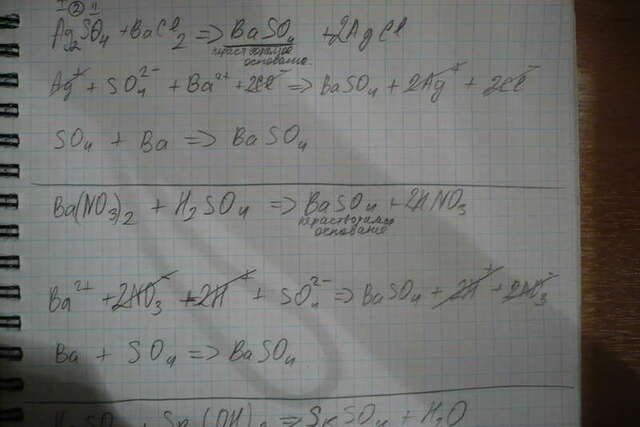 I ② II
Ag₂SO₄ + BaCl₂ => BaSO₄ + 2AgCl
нерастворимое
основание
Ag⁺ + SO₄²⁻ + Ba²⁺ + 2Cl⁻ => BaSO₄ + 2Ag⁺ + 2Cl⁻
SO₄ + Ba => BaSO₄
Ba(NO₃)₂ + H₂SO₄ => BaSO₄ + 2HNO₃
нерастворимое
основание
Ba²⁺ + 2NO₃⁻ + 2H⁺ + SO₄²⁻ => BaSO₄ + 2H⁺ + 2NO₃⁻
Ba + SO₄ => BaSO₄
H₂SO₄ + Sr(OH)₂ = SrSO₄ + H₂O